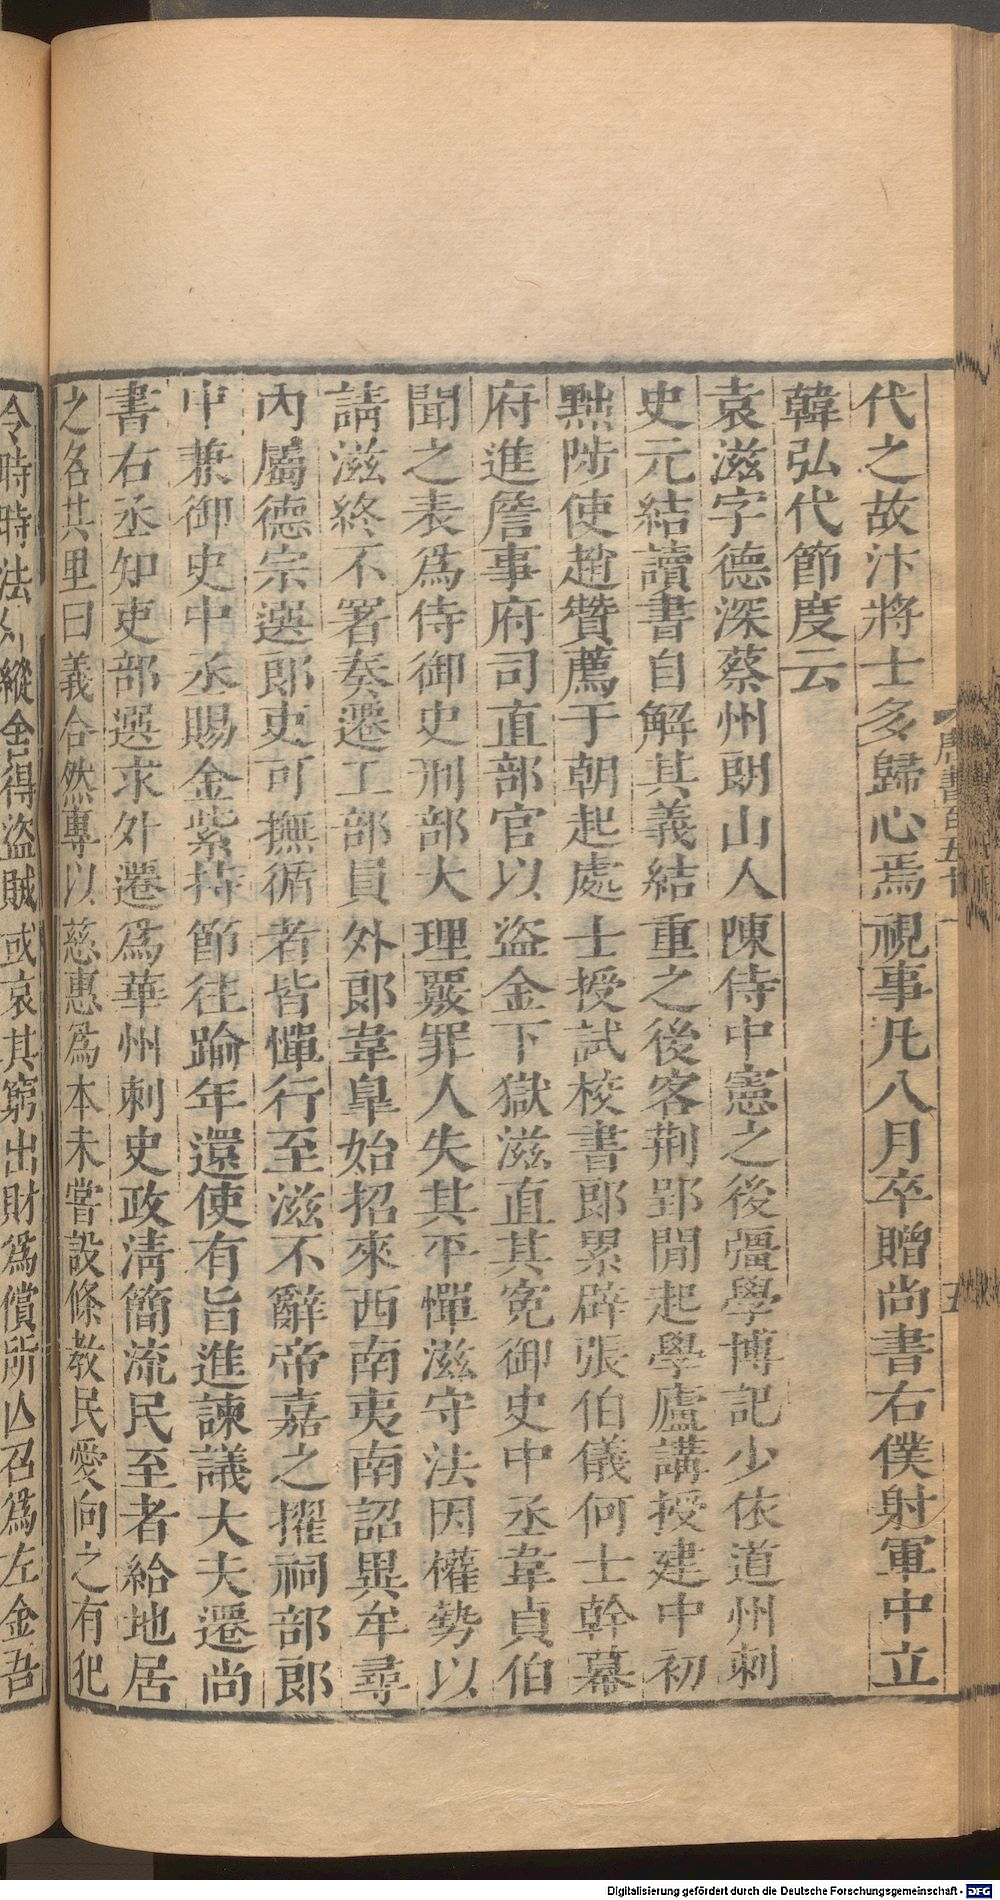 代之故汴將士多歸心焉視事凡八月卒贈尚書右僕射軍中立
韓弘代節度云
袁滋字德深蔡州朗山人陳侍中憲之後彊學博記少依道州刺
史元結讀書自解其義結重之後客荆郢閒起學廬講授建中初
黜陟使趙贊薦于朝起處士授試校書郎累辟張伯儀何士幹幕
府進詹事府司直部官以盜金下獄滋直其寃御史中丞韋貞伯
聞之表爲侍御史刑部大理覈罪人失其平憚滋守法因權勢以
請滋終不署奏遷工部員外郎韋臯始招來西南夷南詔異牟尋
內屬德宗選郎吏可撫循者皆憚行至滋不辭帝嘉之擢祠部郎
中兼御史中丞賜金紫持節往踰年還使有旨進諫議大夫遷尚
書右丞知吏部選求外遷爲華州刺史政淸簡流民至者給地居
之名其里曰義合然專以慈惠爲本未嘗設條教民愛向之有犯
令時時法外縱舍得盜賊或哀其窮出財爲償所亾召爲左金吾
唐書百五十一
五
Digitalisierung gefördert durch die Deutsche Forschungsgemeinschaft - DFG